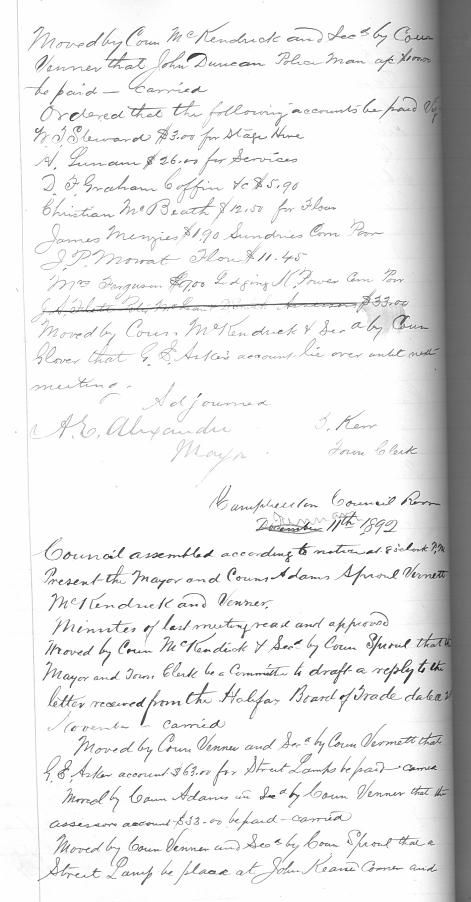 Moved by Coun McKendrick and Secd by Coun
Venner that John Duncan Police Man
be paid — carried
Ordered that the following accounts be paid Viz
Steward $3.00 for Stage Hire
A. Lunam $26.00 for Services
D. F Graham Coffin &c $5.90
Christian McBeath $12.50 for Flour
James Menzies $1.90 Sundries Com Poor
J. P. Mowat Flour $11.45
Mrs Ferguson $7.00 Lodging K Power Com Poor
$33.00
Moved by Coun McKendrick & Secd by Coun
Glover that G. E Asker's account lie over until next
meeting.
Adjourned
A. E. Alexander
Mayor
Kerr
Town Clerk
Campbellton Council Room
December 11th 1892
Council assembled according to notice at 8 o'clock P.M
Present the Mayor and Couns Adams Sproul Vermett
McKendrick and Venner.
Minutes of last meeting read and approved
Moved by Coun McKendick & Secd by Coun Sproul that the
Mayor and Town Clerk be a Committe to draft a reply to the
letter received from the Halifax Board of Trade dated
November — carried
Moved by Coun Venner and Secd by Coun Vermett that
G. E Asker account $63.00 for Street Lamps be paid carried
Moved by Coun Adams Secd by Coun Venner that the
assessors account $33.00 be paid — carried
Moved by Coun Venner and Secd by Coun Sproul that a
Street Lamp be placed at John Keane Corner and